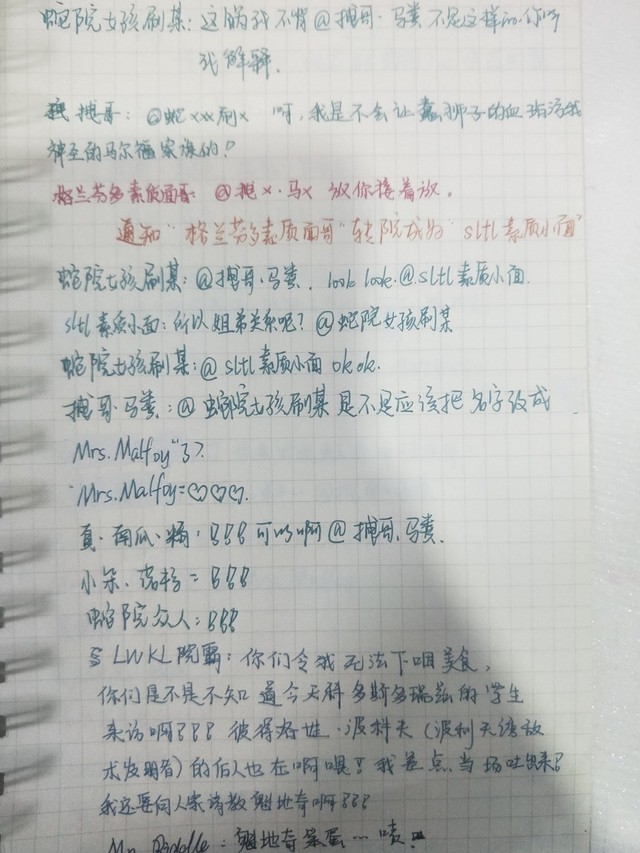 蛇院女孩刷某：这锅我不背@拽哥·马粪 不是这样的.你听
我解释.
拽哥：@蛇xxx刷x 呵，我是不会让蠢狮子的血玷污我
神圣的马尔福家族的！
格兰芬多素质面哥：@拽x·马x 放你接着放。
通知"格兰芬多素质面哥"转院成为"sltl素质小面"
蛇院女孩刷某：@拽哥·马粪，look look.@sltl素质小面.
sltl素质小面：所以姐弟关系呢？@蛇院女孩刷某
蛇院女孩刷某：@sltl素质小面 okok.
拽哥·马粪：@蛇院女孩刷某 是不是应该把名字改成
Mrs.Malfoy"了？
Mrs.Malfoy：♡♡♡.
真·南瓜·：可以啊@拽哥.马粪.
小朵.
蛇院众人：
LWKL院霸：你们令我无法下咽美食，
你们是不是不知道今天科多斯多瑞兹的学生
来访啊？？？ 彼得格姓·波科夫（波利天
术发明者）的后人也在啊喂！我差点当场吐出来！
我还要向人家请教魁地奇啊！！！
Mr Riddle：魁地奇笨蛋…啧.